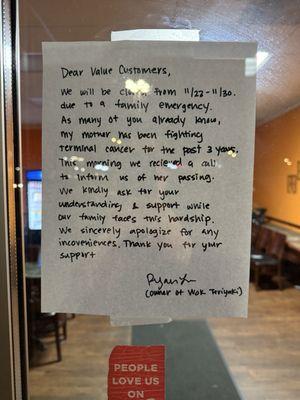 Dear Value Customers,
We will be closed from 11/22-11/30.
due to a family emergency.
As many of you already know,
my mother has been fighting
terminal cancer for the past 3 years.
This morning we recieved a call
to inform us of her passing.
We kindly ask for your
understanding & support while
our family faces this hardship.
We sincerely apologize for any
inconveniences. Thank you for your
support
(owner of Wok Teriyaki)
PEOPLE
LOVE US
ON